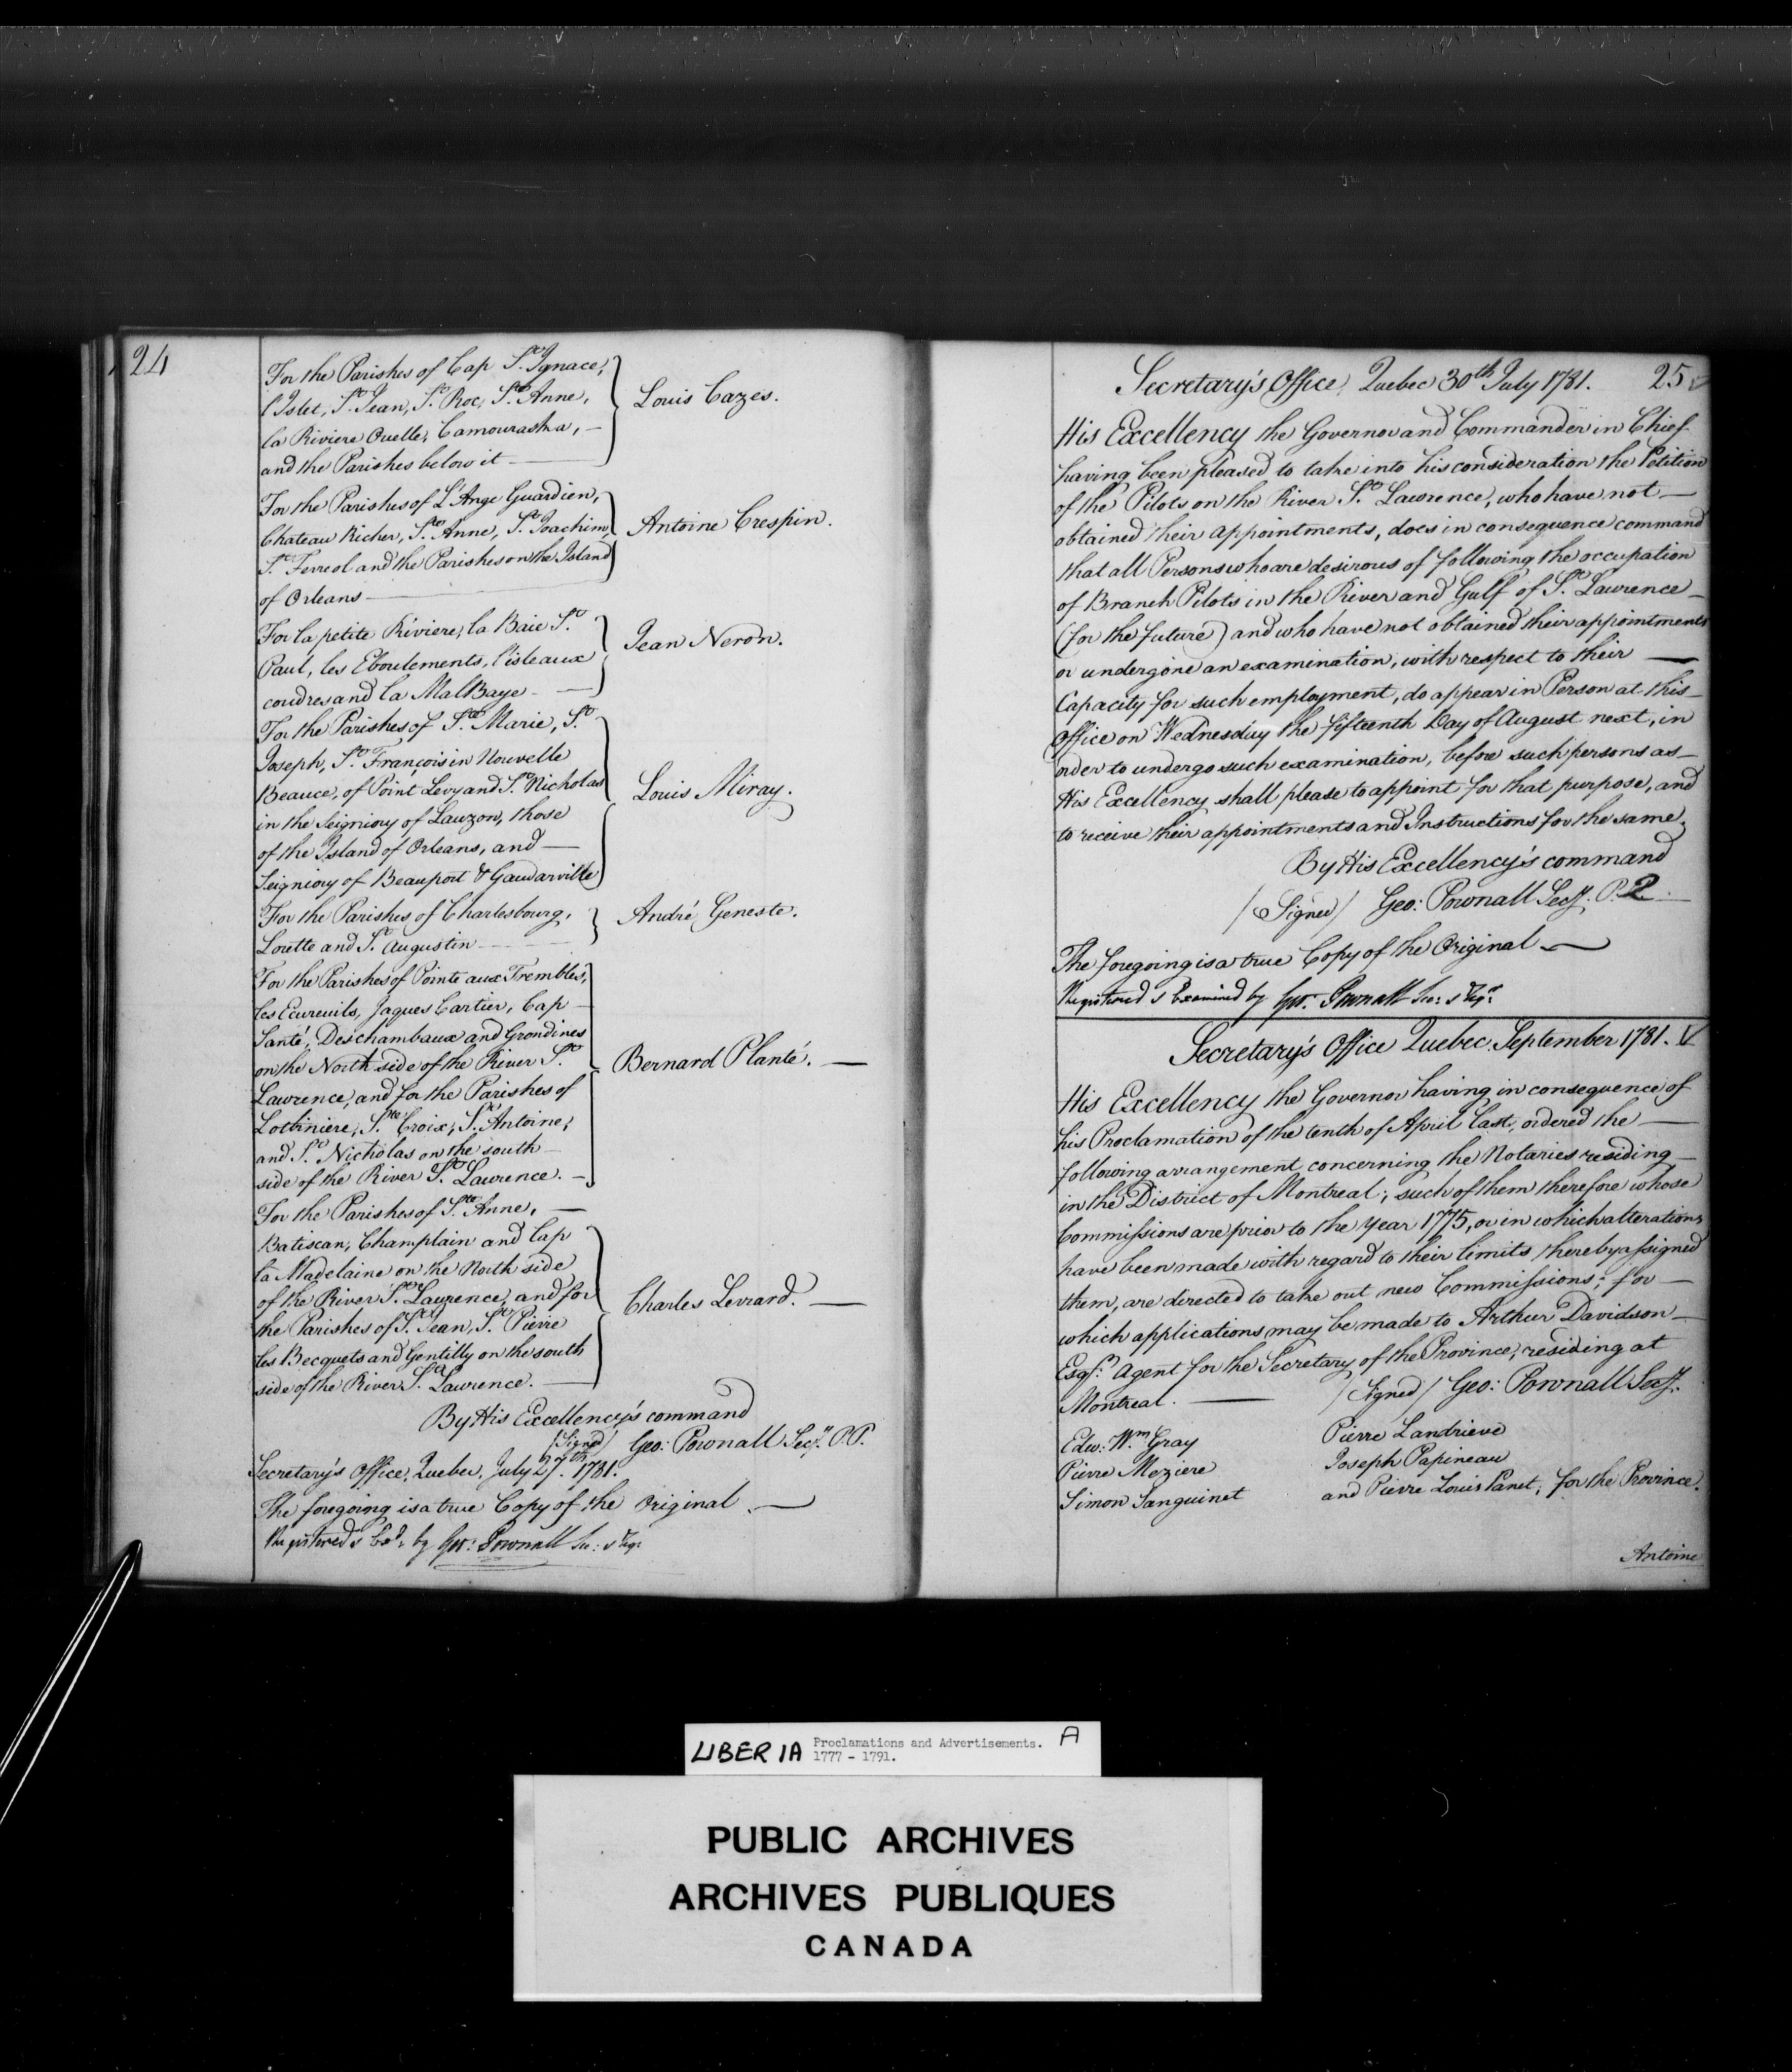 24
For the Parishes of Cap St. Ignace,
l'Islet, St. Jean, St. Roc, Ste. Anne,
la Riviere Ouelle, Camouraska, —
and the Parishes below it —
Louis Cazes.
For the Parishes of L'Ange Guardien,
Chateau Richer, Ste. Anne, St. Joachim,
St. Ferreol and the Parishes on the Island
of Orleans —
Antoine Crespin.
For la petite Riviere, la Baie St.
Paul, les Eboulements, l'isle aux
coudres and la Mal Baye —
Jean Neron.
For the Parishes of Ste. Marie, St.
Joseph, St. François in Nouvelle
Beauce, of Point Levy and St. Nicholas
in the Seigniory of Lauzon, those
of the Island of Orleans, and —
Seigniory of Beauport & Gaudarville
Louis Miray.
For the Parishes of Charlesbourg,
Lorette and St. Augustin —
André Geneste.
For the Parishes of Pointe aux Trembles,
les Ecureuils, Jaques Cartier, Cap —
Santé, Deschambaux and Grondines
on the North side of the River St.
Lawrence, and for the Parishes of
Lotbiniere, Ste. Croix, St. Antoine,
and St. Nicholas on the south —
side of the River St. Lawrence. —
Bernard Planté. —
For the Parishes of Ste. Anne, —
Batiscan, Champlain and Cap
la Madelaine on the North side
of the River St. Lawrence, and for
the Parishes of St. Jean, St. Pierre
les Becquets and Gentilly on the south
side of the River St. Lawrence. —
Charles Levrard. —
By His Excellency's command
(Signed) Geo: Pownall Secy. P.P.
Secretary's Office, Quebec, July 27th. 1781.
The foregoing is a true Copy of the Original —
Registered & Exd. by Geo: Pownall Sec: & Regr.
Secretary's Office, Quebec 30th July 1781. 25
His Excellency the Governor and Commander in Chief
having been pleased to take into his consideration the Petition
of the Pilots on the River St. Lawrence, who have not —
obtained their appointments, does in consequence command
that all Persons who are desirous of following the occupation
of Branch Pilots in the River and Gulf of St. Lawrence —
(for the future) and who have not obtained their appointments
or undergone an examination, with respect to their —
Capacity for such employment, do appear in Person at this —
Office on Wednesday the fifteenth Day of August next, in
order to undergo such examination, before such persons as —
His Excellency shall please to appoint for that purpose, and
to receive their appointments and Instructions for the same.
By His Excellency's command
/Signed/ Geo: Pownall Secy. P. 2
The foregoing is a true Copy of the Original —
Registered & Examined by Geo: Pownall Sec: & Regr.
Secretary's Office Quebec September 1781. V
His Excellency the Governor having in consequence of
his Proclamation of the tenth of April last, ordered the —
following arrangement concerning the Notaries residing —
in the District of Montreal; such of them therefore whose
Commissions are prior to the year 1775, or in which alterations
have been made with regard to their limits thereby assigned
them, are directed to take out new Commissions; for —
which applications may be made to Arthur Davidson —
Esqr. Agent for the Secretary of the Province, residing at
Montreal. — /Signed/ Geo: Pownall Secy.
Edw: Wm. Gray
Pierre Meziere
Simon Sanguinet
Pierre Landrieve
Joseph Papineau
and Pierre Louis Panet, for the Province.
Antoine
LIBER 1A Proclamations and Advertisements. A
1777 - 1791.
PUBLIC ARCHIVES
ARCHIVES PUBLIQUES
CANADA